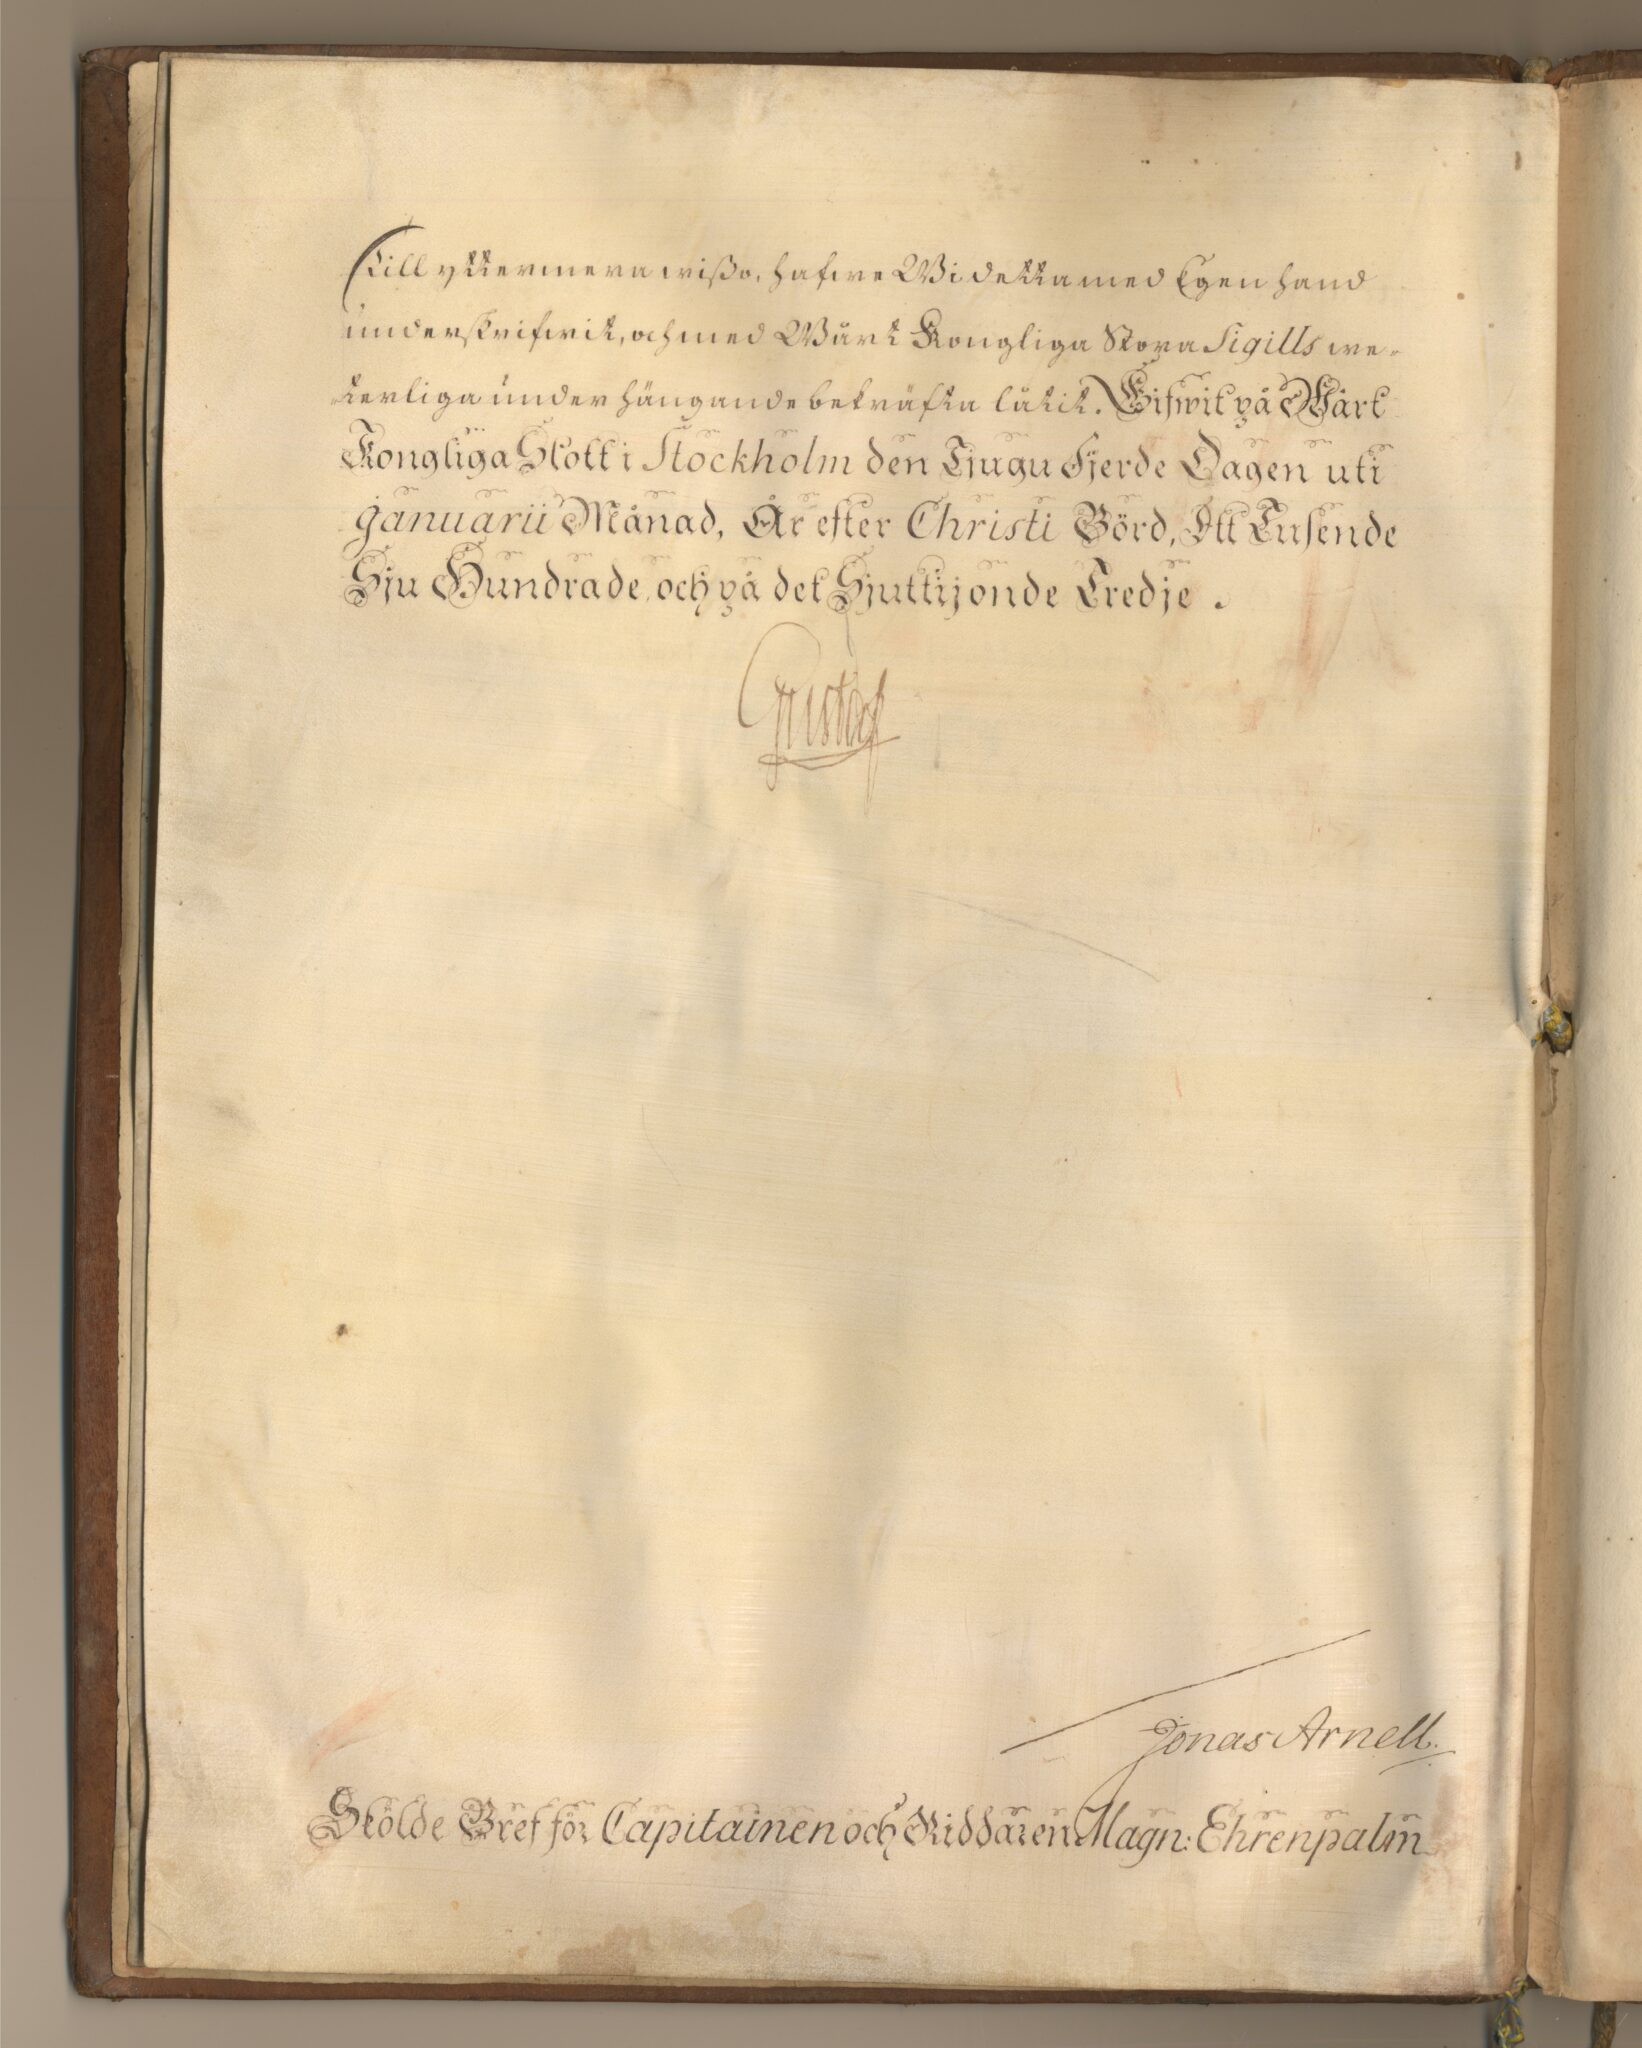 Till yttermera wißo, hafwe Wi detta med Egen hand
underskrifwit, och med Wårt Kongliga Stora Sigills we-
terliga underhängande bekräfta låtit. Gifwit på Wårt
Kongliga Slott i Stockholm den Tjugu Fjerde Dagen uti
Januarii Månad, År efter Christi Börd, Itt Tusende
Sju Hundrade, och på det Sjuttijonde Tredje.
Gustaf
Jonas Arnell.
Skölde Bref för Capitainen och Riddaren Magn: Ehrenpalm